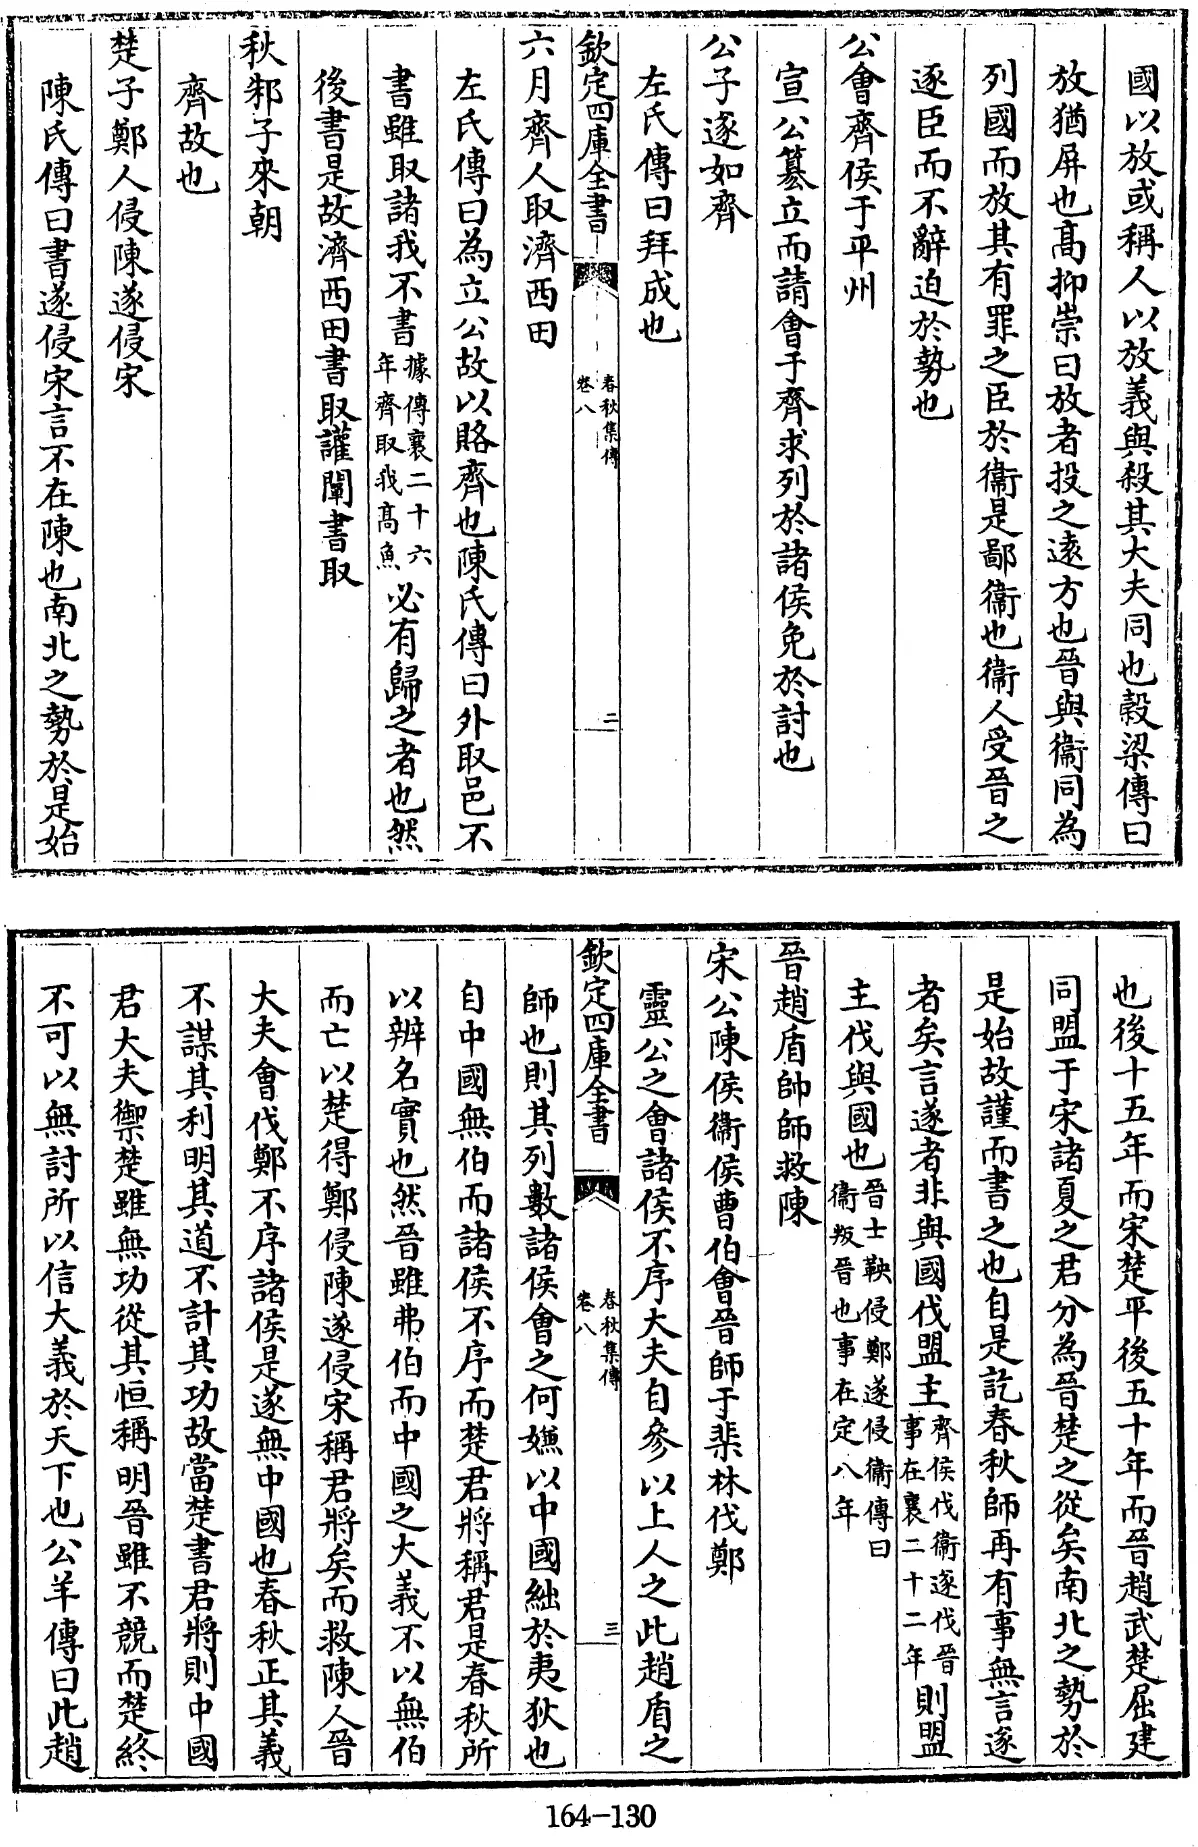 國以放或稱人以放義與殺其大夫同也穀梁傳曰
放猶屏也髙抑崇曰放者投之逺方也晉與衛同為
列國而放其有罪之臣於衛是鄙衛也衛人受晉之
逐臣而不辭迫於勢也
公會齊侯于平州
宣公簒立而請會于齊求列於諸侯免於討也
公子遂如齊
左氏傳曰拜成也
欽定四庫全書
春秋集傳
卷八
二
六月齊人取濟西田
左氏傳曰為立公故以賂齊也陳氏傳曰外取邑不
書雖取諸我不書據傳襄二十六年齊取我髙魚必有歸之者也然
後書是故濟西田書取讙闡書取
秋邾子來朝
齊故也
楚子鄭人侵陳遂侵宋
陳氏傳曰書遂侵宋言不在陳也南北之勢於是始
也後十五年而宋楚平後五十年而晉趙武楚屈建
同盟于宋諸夏之君分為晉楚之從矣南北之勢於
是始故謹而書之也自是訖春秋師再有事無言遂
者矣言遂者非與國伐盟主齊侯伐衛遂伐晉事在襄二十二年則盟
主伐與國也晉士鞅侵鄭遂侵衛傳曰衛叛晉也事在定八年
晉趙盾帥師救陳
宋公陳侯衛侯曹伯會晉師于棐林伐鄭
靈公之會諸侯不序大夫自參以上人之此趙盾之
欽定四庫全書
春秋集傳
卷八
三
師也則其列數諸侯會之何嫌以中國絀於夷狄也
自中國無伯而諸侯不序而楚君將稱君是春秋所
以辨名實也然晉雖弗伯而中國之大義不以無伯
而亡以楚得鄭侵陳遂侵宋稱君將矣而救陳人晉
大夫會伐鄭不序諸侯是遂無中國也春秋正其義
不謀其利明其道不計其功故當楚書君將則中國
君大夫禦楚雖無功從其恒稱明晉雖不競而楚終
不可以無討所以信大義於天下也公羊傳曰此趙
164-130